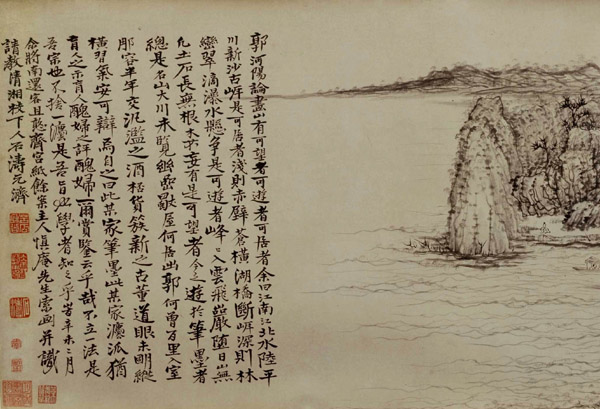 郭河陽論畫山有可望者可遊者可居者余曰江南江北水陸平
川新沙古岸是可居者淺則赤壁蒼橫湖橋斷岸深則林
巒翠滴瀑水懸爭是可遊者峰峰入雲飛巖墮日山無
凡土石長無根木不妄有是可望者今之遊於筆墨者
總是名山大川未覽幽巖獨屋何居出郭何曾百里入室
那容半年交泛濫之酒杯貨簇新之古董道眼未明縱
橫習氣安可辯焉自之曰此某家筆墨此某家灋派猶
盲人之示盲人醜婦之評醜婦爾賞鑒云乎哉不立一法是
吾宗也不捨一灋是吾旨也學者知之乎旹辛未二月
余將南還客且憨齋宮紙餘案主人慎庵先生索畫并識
請教清湘枝下人石濤元濟